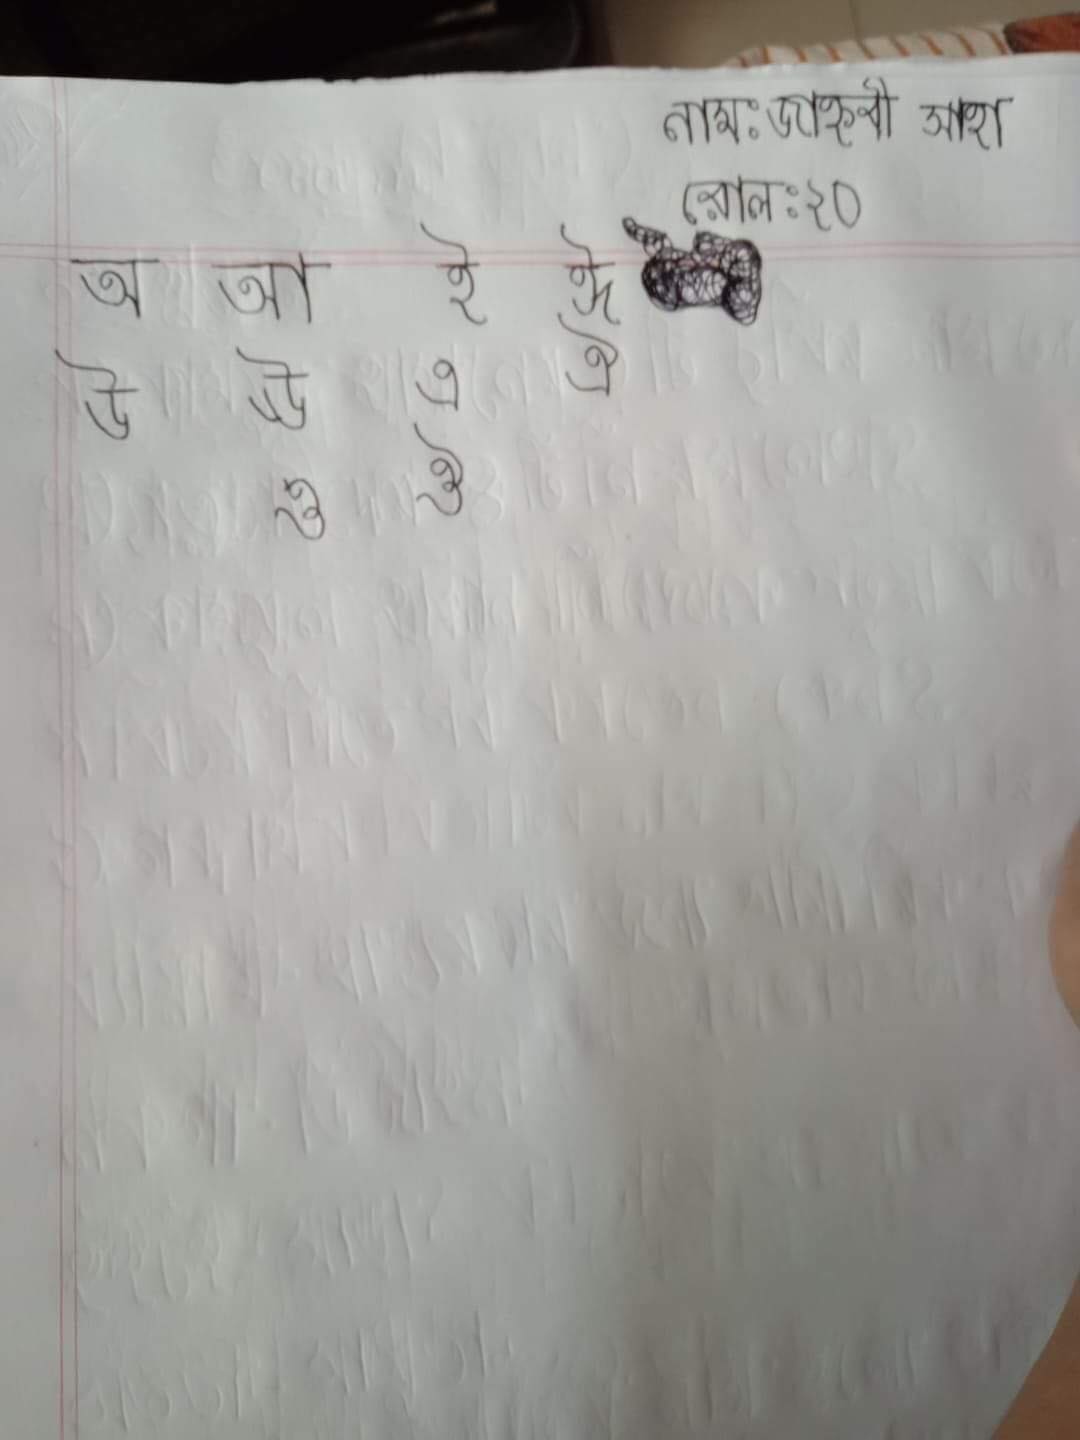 নামঃজাহ্নবী সাহা
রোলঃ২০
অ আ ই ঈ
উ ঊ এ ঐ
ও ঔ